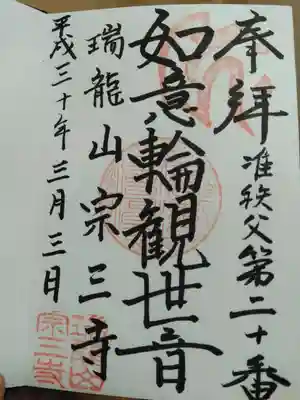 奉拝
准秩父第二十番
如意輪観世音
瑞龍山宗三寺
平成三十年三月三日